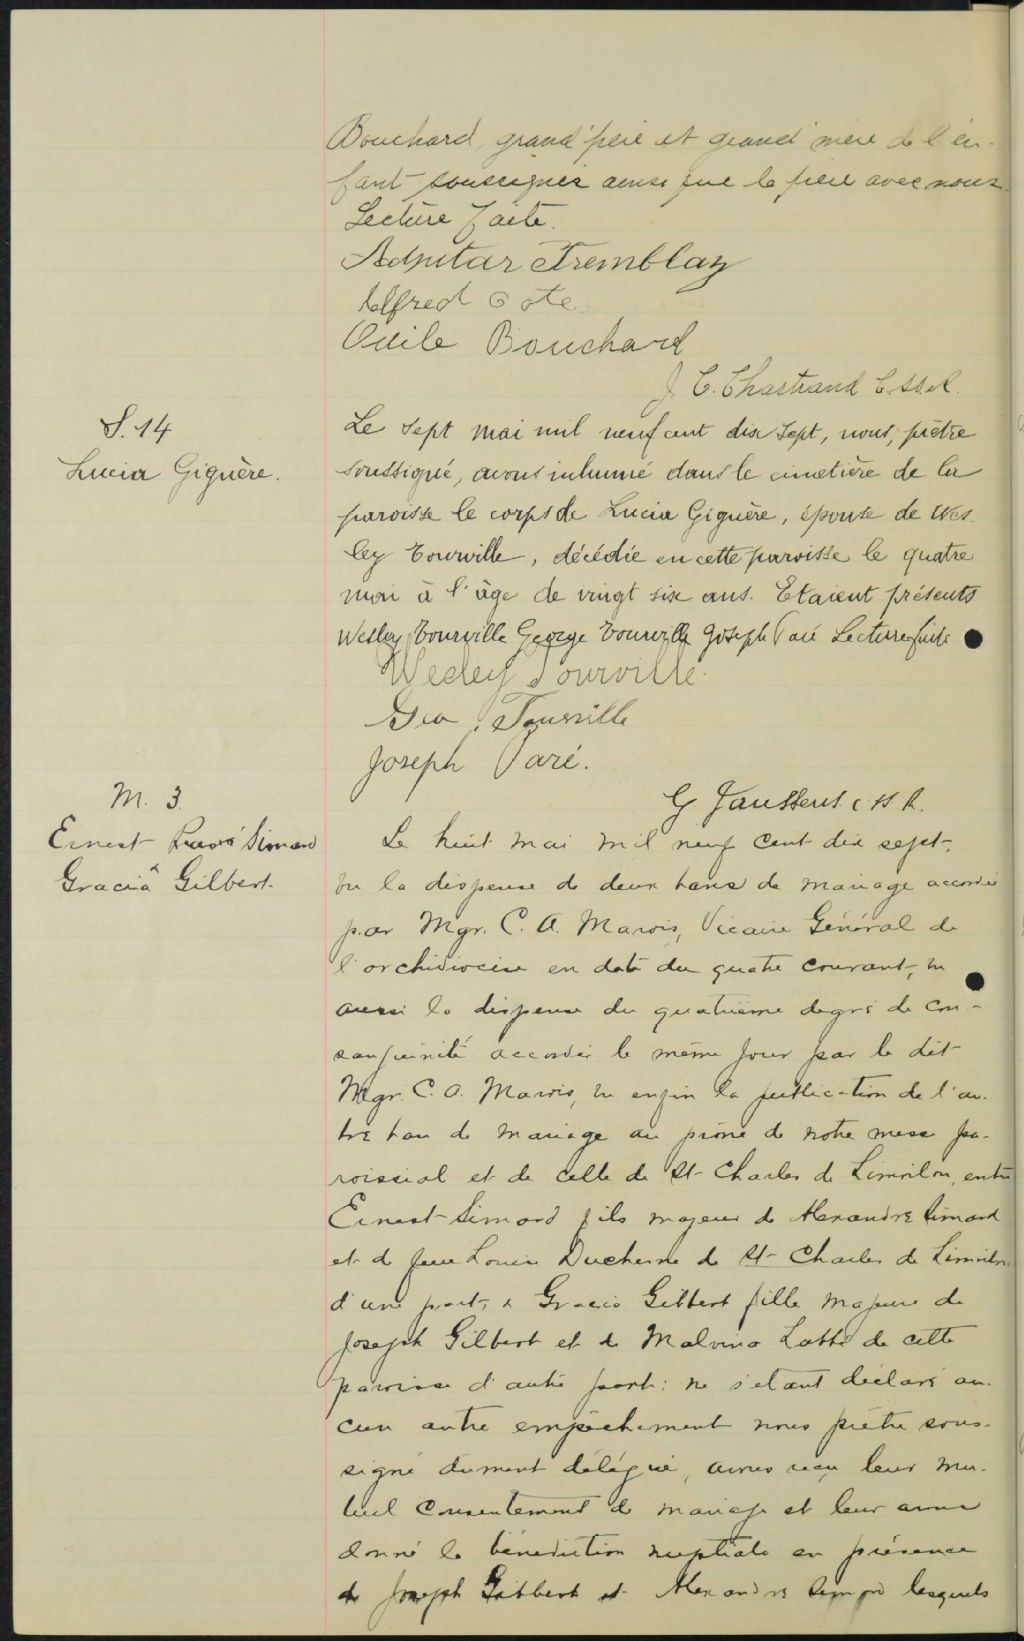 Bouchard, grand'père et grand'mère de l'en-
fant soussignés ainsi que le père avec nous.
Lecture faite.
Adjutar Tremblay
Alfred Cote
Odile Bouchard
J. E. Chartrand C.SS.R.
S. 14
Lucia Giguère.
Le sept mai mil neuf cent dix sept, nous, prêtre
soussigné, avons inhumé dans le cimetière de la
paroisse le corps de Lucia Giguère, épouse de Wes
ley Tourville, décédée en cette paroisse le quatre
mai à l'âge de vingt six ans. Etaient présents
Wesley Tourville George Tourville Joseph Paré Lecture faite
Wesley Tourville
Geo. Tourville
Joseph Paré.
G. Janssens C.SS.R.
M. 3.
Ernest Simard
Gracia Gilbert.
Le huit mai mil neuf cent dix sept,
vu la dispense de deux bans de mariage accordée
par Mgr. C. A. Marois, Vicaire Général de
l'archidiocèse en date du quatre courant, vu
aussi la dispense du quatrième degré de con-
sanguinité accordée le même jour par le dit
Mgr. C. A. Marois, vu enfin la publication de l'au-
tre ban de mariage au prône de notre messe pa-
roissial et de celle de St Charles de Limoilou, entre
Ernest Simard fils majeur de Alexandre Simard
et de feue Louise Duchesne de St Charles de Limoilou
d'une part, & Gracia Gilbert fille majeure de
Joseph Gilbert et de Malvina de cette
paroisse d'autre part: ne s'étant déclaré au-
cun autre empêchement nous prêtre sous-
signé dument délégué, avons reçu leur mu-
tuel consentement de mariage et leur avons
donné la bénédiction nuptiale en présence
de Joseph Gilbert et Alexandre Simard lesquels